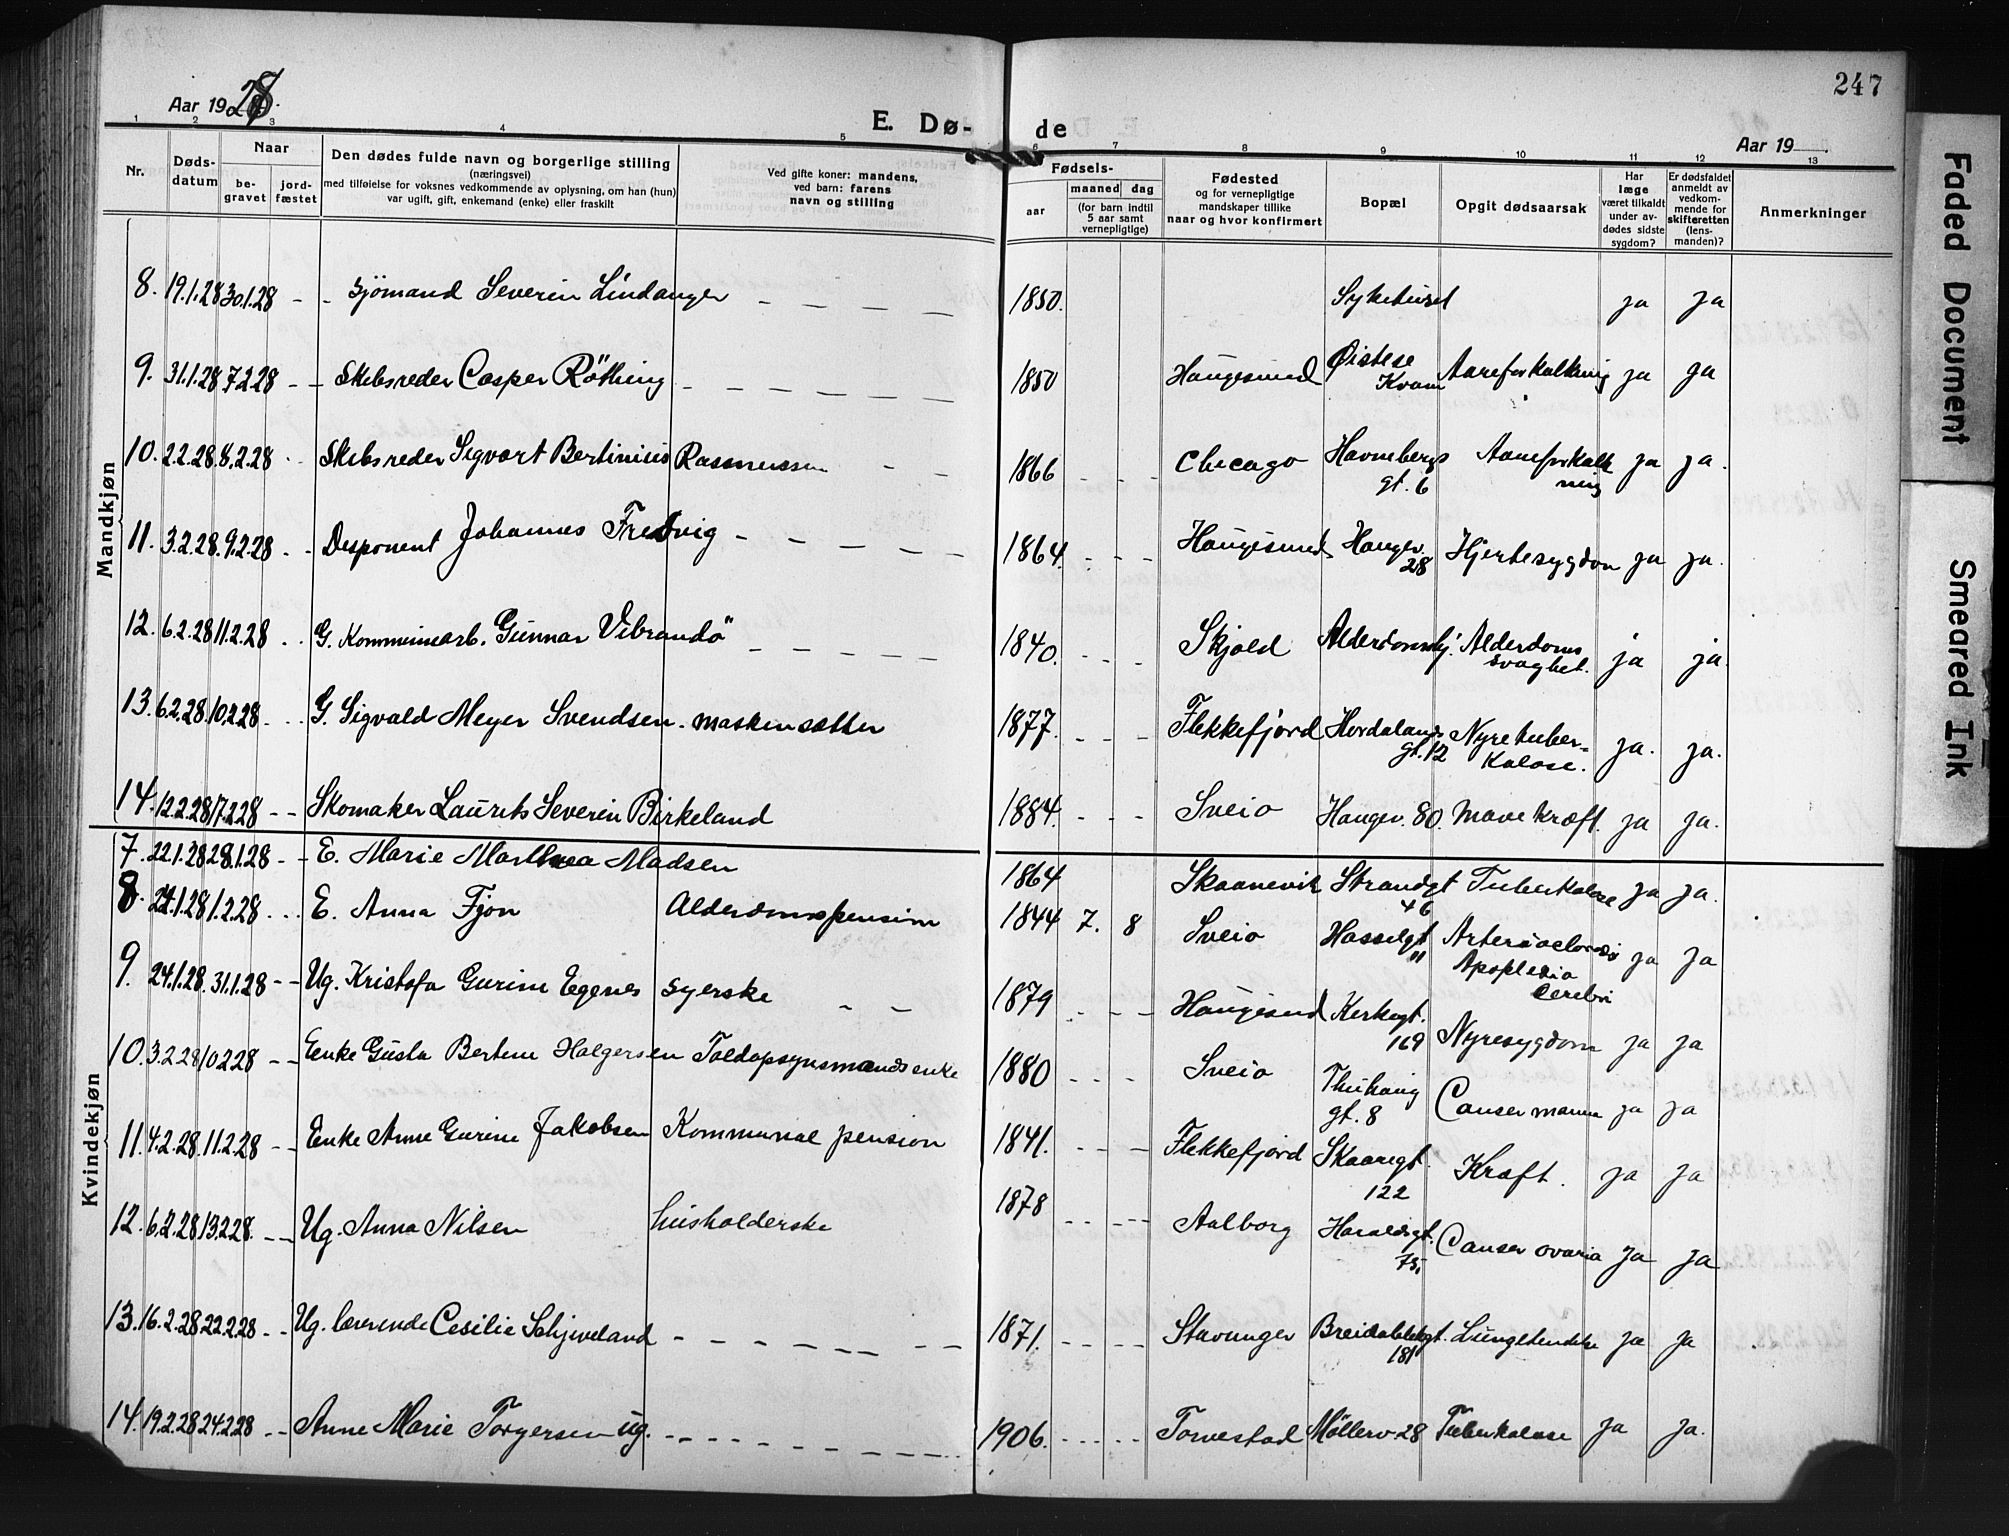 247
Aar 1928.
E. Dø- de
Aar 19
1 2 3 4 5 6 7 8 9 10 11 12 13
Nr.
Døds-
datum
Naar
be-
gravet
jord-
fæstet
Den dødes fulde navn og borgerlige stilling
(næringsvei)
med tilføielse for voksnes vedkommende av oplysning, om han (hun)
var ugift, gift, enkemand (enke) eller fraskilt
Ved gifte koner: mandens,
ved barn: farens
navn og stilling
Fødsels-
aar
maaned dag
(for barn indtil
5 aar samt
vernepligtige)
Fødested
og for vernepligtige
mandskaper tillike
naar og hvor konfirmert
Bopæl
Opgit dødsaarsak
Har
læge
været tilkaldt
under av-
dødes sidste
sygdom?
Er dødsfaldet
anmeldt av
vedkom-
mende for
skifteretten
(lens-
manden)?
Anmerkninger
Mandkjøn
8. 19.1.28 30.1.28 - - Sjömand Severin Lindanger - - - - 1850. Sykehuset ja ja
9. 31.1.28 7.2.28 - - Skibsreder Casper Röthing - - - - - - 1850 Haugesund Øistese Kvam Aareforkalkning ja ja
10. 2.2.28. 8.2.28 - - Skibsreder Sigvart Bertinius Rasmussen - - 1866 - - - Chicago Havnebergs gt. 6 Aareforkalk ning ja ja.
11. 3.2.28. 9.2.28 - - Disponent Johannes Fredvig - - - - - 1864. - - - Haugesund Haugev. 28 Hjertesygdom ja ja.
12. 6.2.28 11.2.28 - - G. Kommunearb. Gunnar Vibrandö - - - - - 1840. - - - Skjold Alderdomshj. Alderdoms svaghet. ja ja.
13. 6.2.28. 10.2.28 - - - G. Sigvald Meyer Svendsen. maskinsætter 1877. - - - Flekkefjord Hordalands gt. 12 Nyretuber= kulose. ja. ja.
14. 12.2.28 17.2.28 - - Skomaker Laurits Severin Birkeland 1884. - - - Sveio Haugev. 80. Mavekræft. ja ja.
Kvindekjøn
7. 22.1.28 28.1.28 - - E. Marie Marthea Madsen 1864 Skaanevik Strandgt 46 Tuberkulose ja ja.
8. 24.1.28 1.2.28 - - - E. Anna Fjon Alderdomspension 1844 7. 8 Sveio Hasselgt 11 Apoplexia cerebri ja ja
9. 24.1.28. 31.1.28 - - Ug. Kristofa Gurine Egenes syerske - - 1879 - - - Haugesund Kirkegt. 169 Nyresygdom ja ja
10. 3.2.28 10.2.28 - - Enke Gusta Bertine Holgersen Toldopsynsmandsenke 1880 - - - Sveio gt. 8 Canser mamma ja ja
11. 4.2.28. 11.2.28 - - Enke Anne Gurine Jakobsen Kommunal pension 1841. - - - Flekkefjord Skaaregt. 122 Kræft. ja ja
12. 6.2.28 13.2.28. - - Ug. Anna Nilsen husholderske 1878 - - - - Aalborg Haraldsgt. 75. Canser ovaria ja ja
13. 16.2.28 22.2.28 - - Ug. lærerinde Cesilie Schjveland - - - - - - - 1871. - - - - Stavanger Breidablikgt. 181 Lungebetendelse ja ja
14. 19.2.28 24.2.28 - - Anne Marie Torgersen ug. - - - - - - 1906. - - - - Torvestad Möllerv. 28 Tuberkulose ja ja.
Faded Document
Smeared Ink